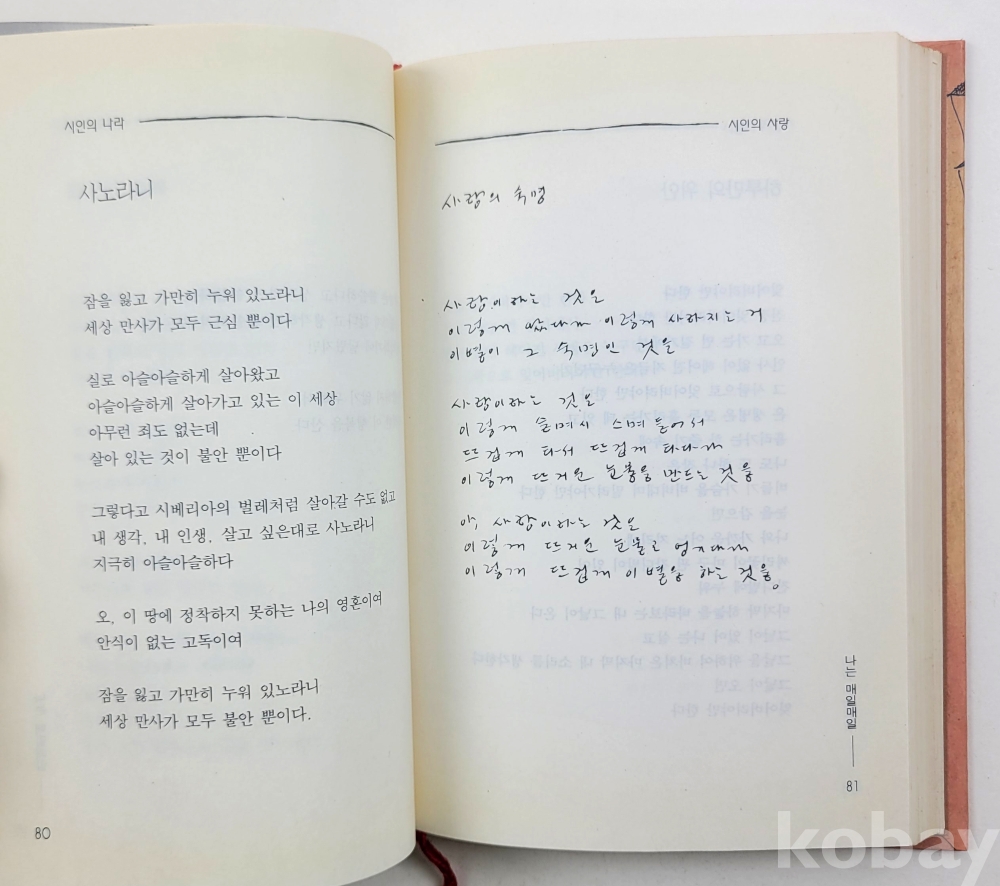 시인의 나라
사노라니
잠을 잃고 가만히 누워 있노라니
세상 만사가 모두 근심 뿐이다
실로 아슬아슬하게 살아왔고
아슬아슬하게 살아가고 있는 이 세상
아무런 죄도 없는데
살아 있는 것이 불안 뿐이다
그렇다고 시베리아의 벌레처럼 살아갈 수도 없고
내 생각, 내 인생, 살고 싶은대로 사노라니
지극히 아슬아슬하다
오, 이 땅에 정착하지 못하는 나의 영혼이여
안식이 없는 고독이여
잠을 잃고 가만히 누워 있노라니
세상 만사가 모두 불안 뿐이다.
80
시인의 사랑
사랑의 숙명
사랑이라는 것은
이렇게 왔다가 이렇게 사라지는 거
이별이 그 숙명인 것을
사랑이라는 것은
이렇게 스며들어서
뜨겁게 타서 뜨겁게 타다가
이렇게 뜨거운 눈물을 만드는 것을
아, 사랑이라는 것은
이렇게 뜨거운 눈물로
이렇게 뜨겁게 이별을 하는 것을.
나는 매일매일
81
kobay